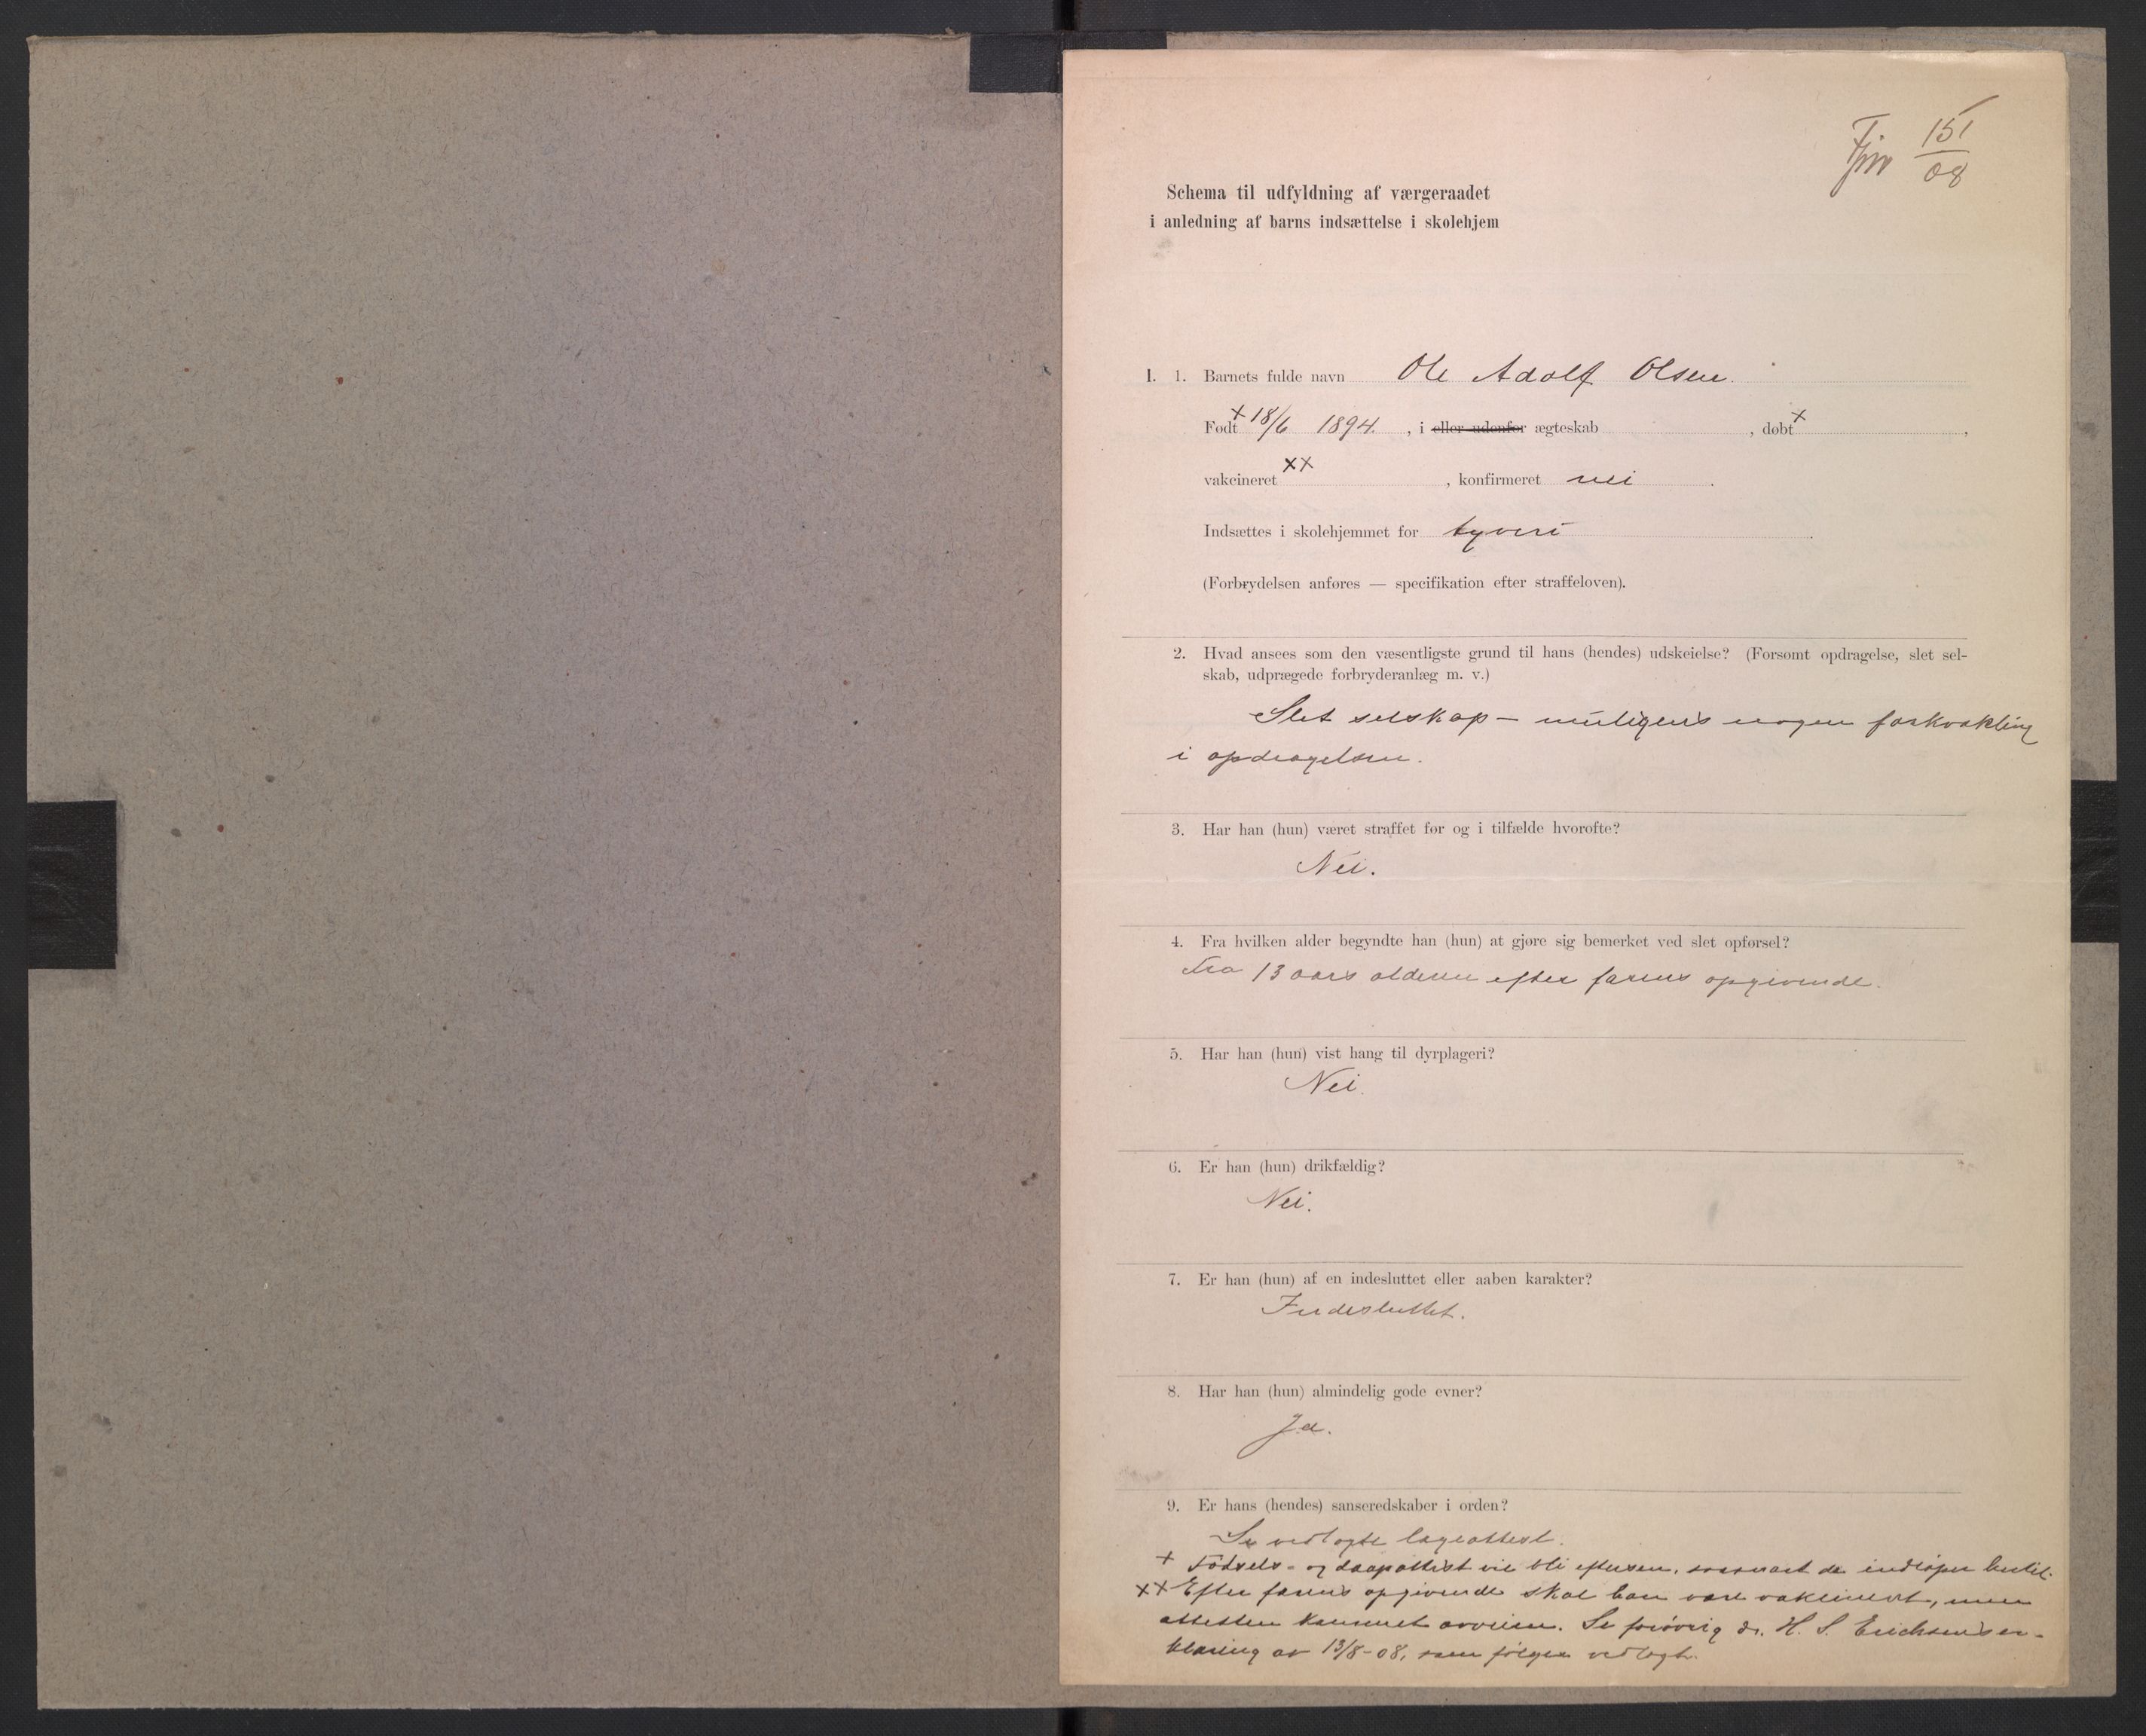 151
08
Schema til udfyldning af værgeraadet
i anledning af barns indsættelse i skolehjem
I. 1. Barnets fulde navn Ole Adolf Olsen.
Født + 18/6 1894. , i eller udenfor ægteskab , døbt + ,
vakcineret ×× , konfirmeret nei .
Indsættes i skolehjemmet for tyveri
(Forbrydelsen anføres — specifikation efter straffeloven).
2. Hvad ansees som den væsentligste grund til hans (hendes) udskeielse? (Forsømt opdragelse, slet sel-
skab, udprægede forbryderanlæg m. v.)
Slet selskap – muligens nogen forkvakling
i opdragelsen.
3. Har han (hun) været straffet før og i tilfælde hvorofte?
Nei.
4. Fra hvilken alder begyndte han (hun) at gjøre sig bemerket ved slet opførsel?
Fra 13 aars alderen efter farens opgivende.
5. Har han (hun) vist hang til dyrplageri?
Nei.
6. Er han (hun) drikfældig?
Nei.
7. Er han (hun) af en indesluttet eller aaben karakter?
Indesluttet.
8. Har han (hun) almindelig gode evner?
Ja.
9. Er hans (hendes) sanseredskaber i orden?
Se vedlagte lægeattest.
+ Fødsels- og daapattest vil bli eftersen. saasnart de indløper hertil.
×× Efter farens opgivende skal han være vakcinert, men
attesten kommet avveien. Se forøvrig dr. H. S. Erichsens er-
klæring av 13/8-08, som følger vedlagt.